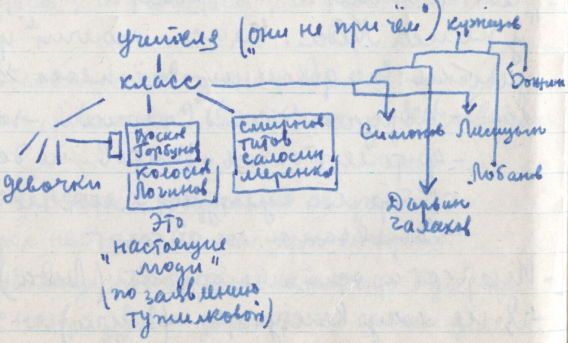 учителя ("они не при чём")
Кузнецов
класс
Божин
девочки
Носков
Горбунов
Колосов
Логинов
Смирнов
Титов
Салосин
Меренков
Симонов
Лисицын
Лобанов
Дарвин
Галахов
Это
"настоящие
люди"
(по заявлению
Тужилковой)